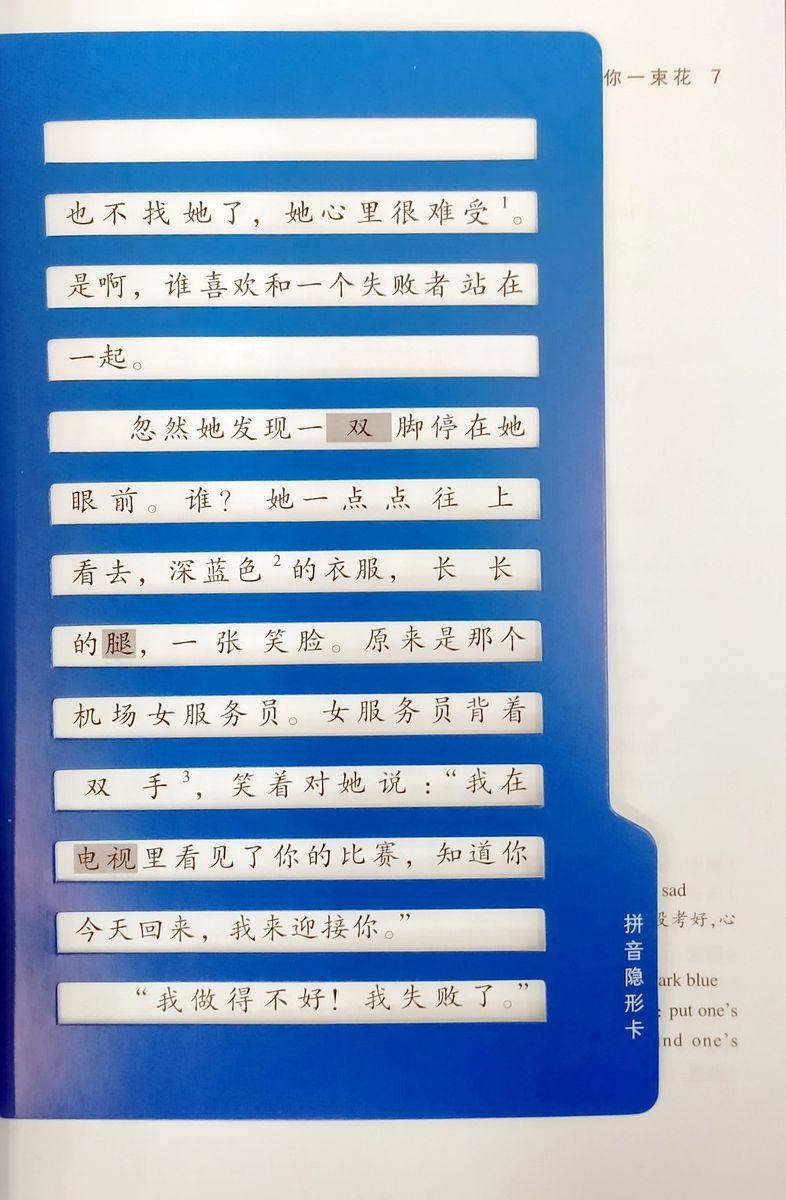 你一束花 7
也不找她了，她心里很难受1。
是啊，谁喜欢和一个失败者站在
一起。
忽然她发现一双脚停在她
眼前。谁？她一点点往上
看去，深蓝色2的衣服，长长
的腿，一张笑脸。原来是那个
机场女服务员。女服务员背着
双手3，笑着对她说：“我在
电视里看见了你的比赛，知道你
今天回来，我来迎接你。”
“我做得不好！我失败了。”
拼音隐形卡
sad
没考好，心
ark blue
: put one's
ind one's